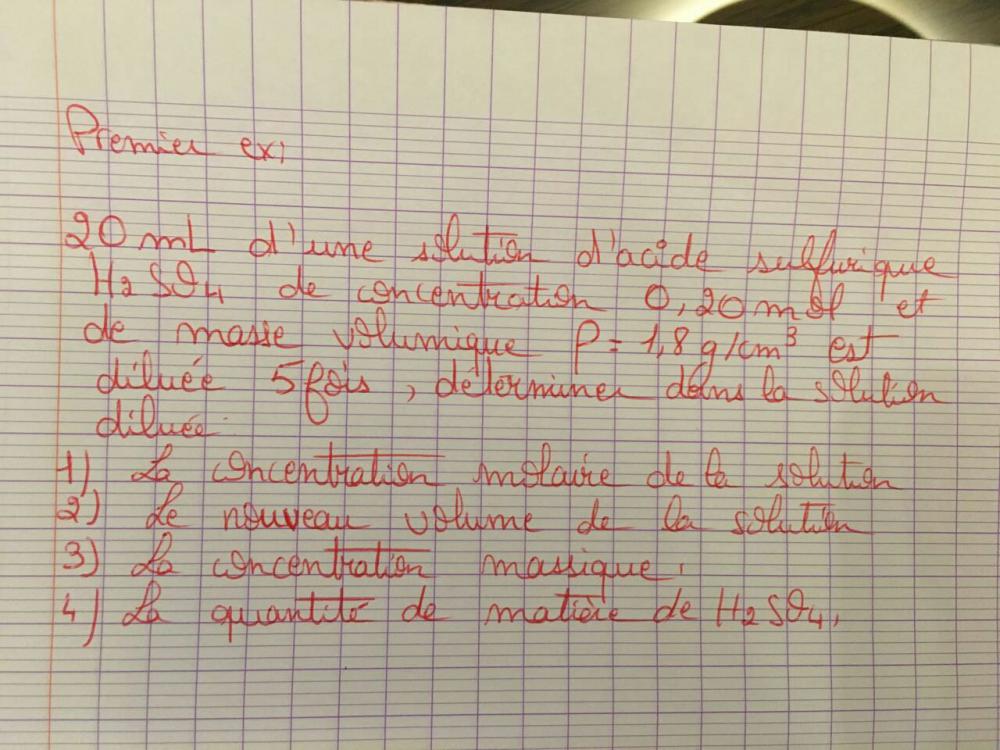 Premier ex,
20 mL d'une solution d'acide sulfurique
H2 SO4 de concentration 0,20 mol et
de masse volumique ρ = 1,8 g/cm³ est
diluée 5 fois, déterminer dans la solution
diluée.
1) La concentration molaire de la solution
2) Le nouveau volume de la solution
3) La concentration massique.
4) La quantité de matière de H2 SO4.